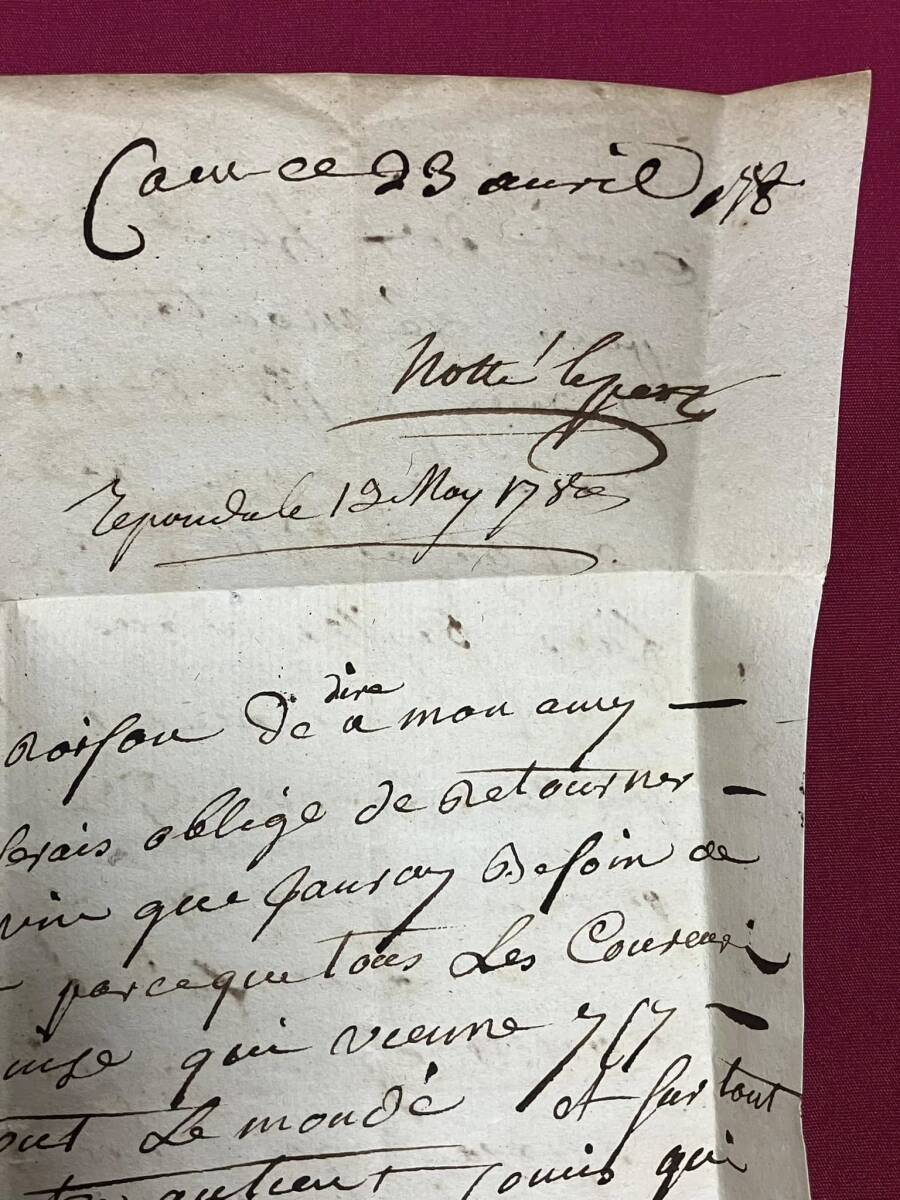 Caen ce 23 auril 178
Notté le
Repondu le 13 May 1780
de dire a mon amy —
serais obligé de Retourner -
que Jauray Besoin de
parceque tous Les Coureur
qui vienne ysy —
Le monde et sur tout
qui